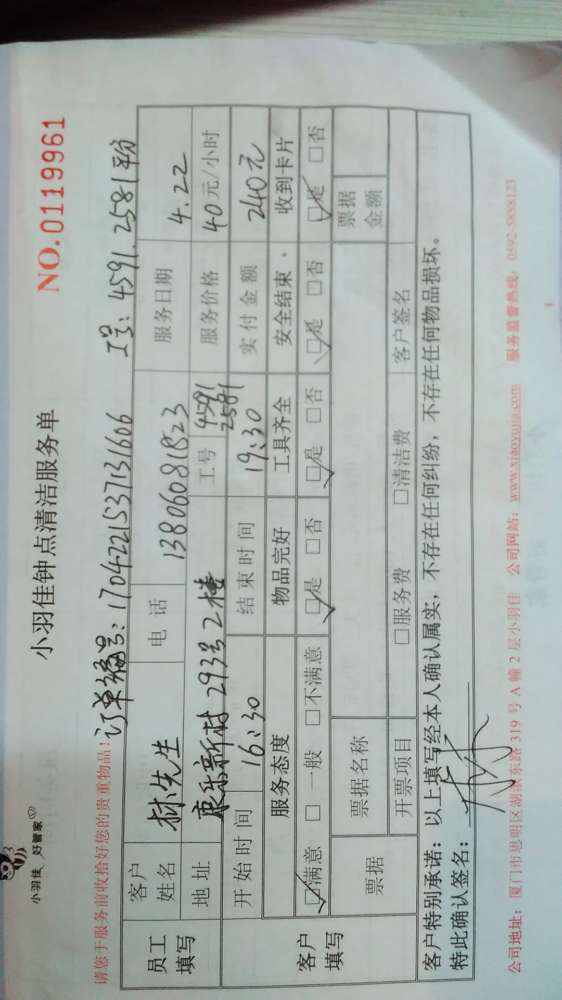 小羽佳 好管家
小羽佳钟点清洁服务单
NO.0119961
请您于服务前收拾好您的贵重物品!
订单编号:170422153713160​6 工号:4591.2581
员工填写
客户姓名 林先生 电话 13806081823 服务日期 4.22
地址 康乐新村293号2楼 工号 4591 2581 服务价格 40元/小时
开始时间 16:30 结束时间 19:30 实付金额 240元
客户填写
服务态度 物品完好 工具齐全 安全结束 收到卡片
☑满意 □一般 □不满意 ☑是 □否 ☑是 □否 ☑是 □否 ☑是 □否
票据 票据名称 票据金额
开票项目 □服务费 □清洁费 客户签名
客户特别承诺:以上填写经本人确认属实,不存在任何纠纷,不存在任何物品损坏。
特此确认签名:
公司地址:厦门市思明区湖滨东路319号A幢2层小羽佳 公司网站:www.xiaoyujia.com 服务监督热线:0592-5858123